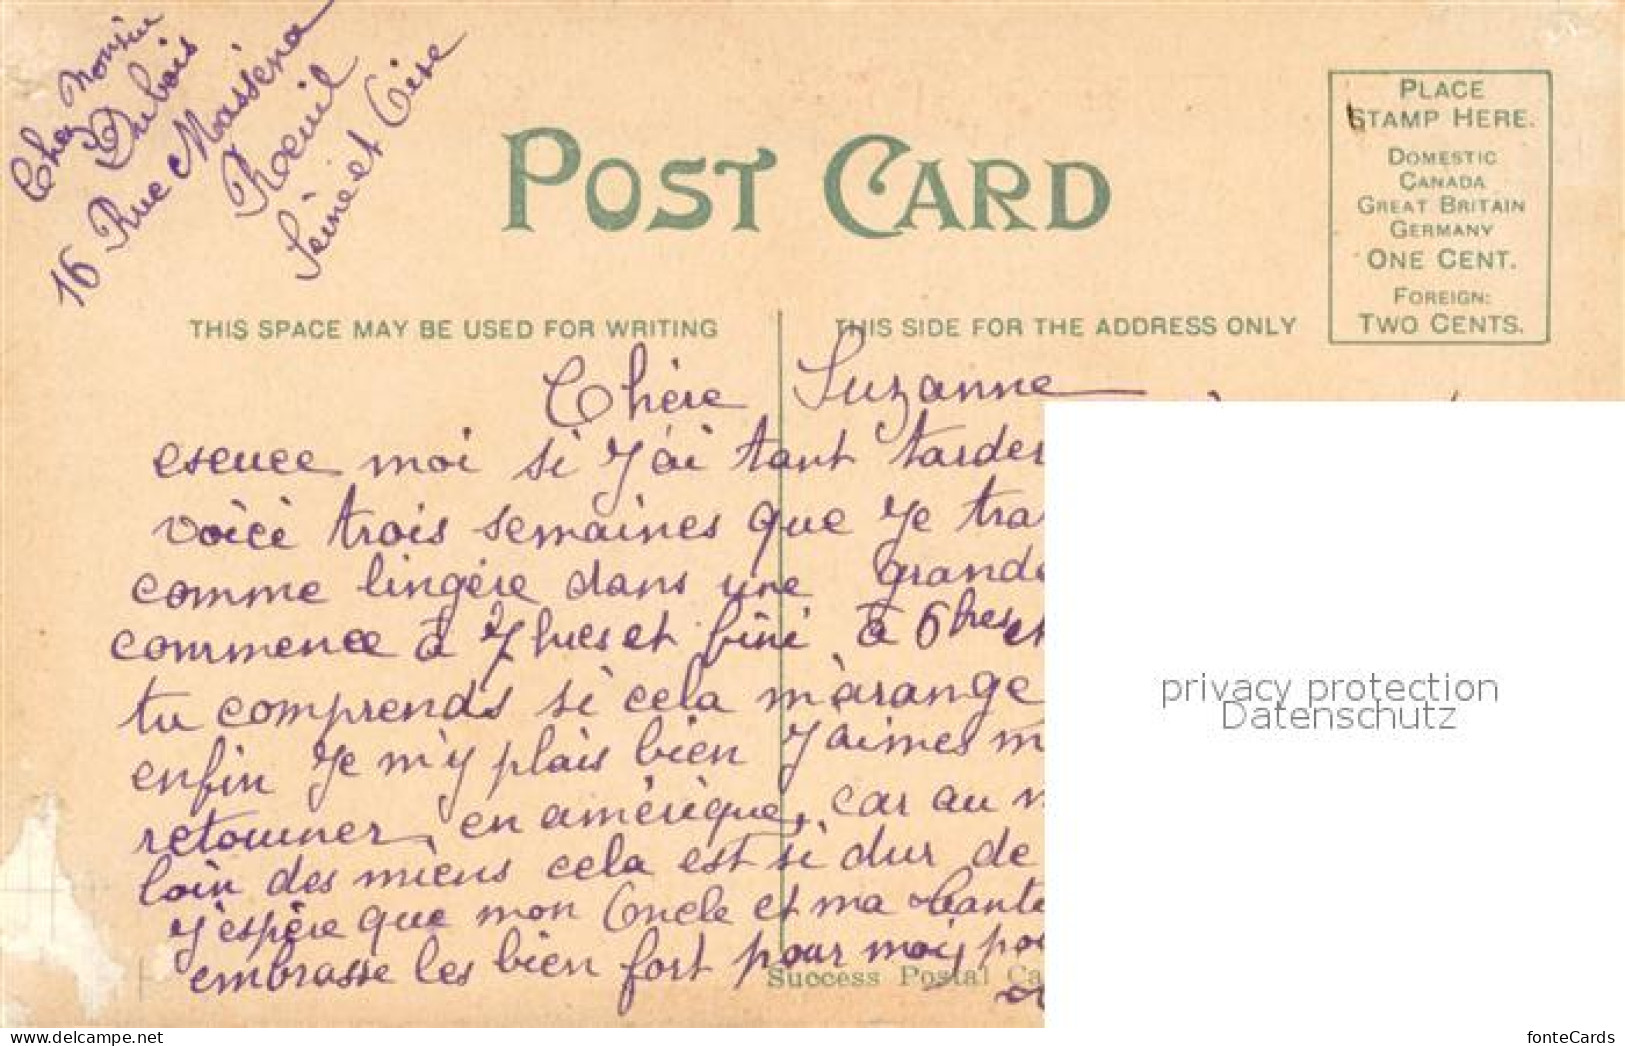 Chez Monsieu
Dubois
16 Rue Masséna
Rueuil
Seine et Oise
POST CARD
PLACE
STAMP HERE.
DOMESTIC
CANADA
GREAT BRITAIN
GERMANY
ONE CENT.
FOREIGN:
TWO CENTS.
THIS SPACE MAY BE USED FOR WRITING
THIS SIDE FOR THE ADDRESS ONLY
Chère Suzanne
escuce moi si j'ai tant tarder
voici trois semaines que je tra
comme lingère dans une grande
commence à 7 hres et fini à 6 hres et
tu comprends si cela m'arange
enfin je m'y plais bien j'aimes m
retourner en amérique, car au
loin des miens cela est si dur de
j'espère que mon Oncle et ma tante
embrasse les bien fort pour moi, pou
Success Postal Ca
privacy protection
Datenschutz
fonteCards
delcampe.net